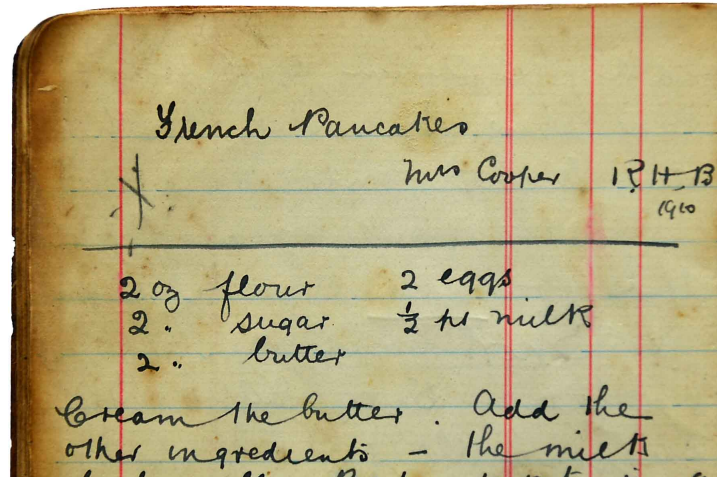 French Pancakes
Mrs Cooper R. H. B
1910
2 oz flour 2 eggs
2 " sugar ½ pt milk
2 " butter
Cream the butter. Add the
other ingredients – the milk